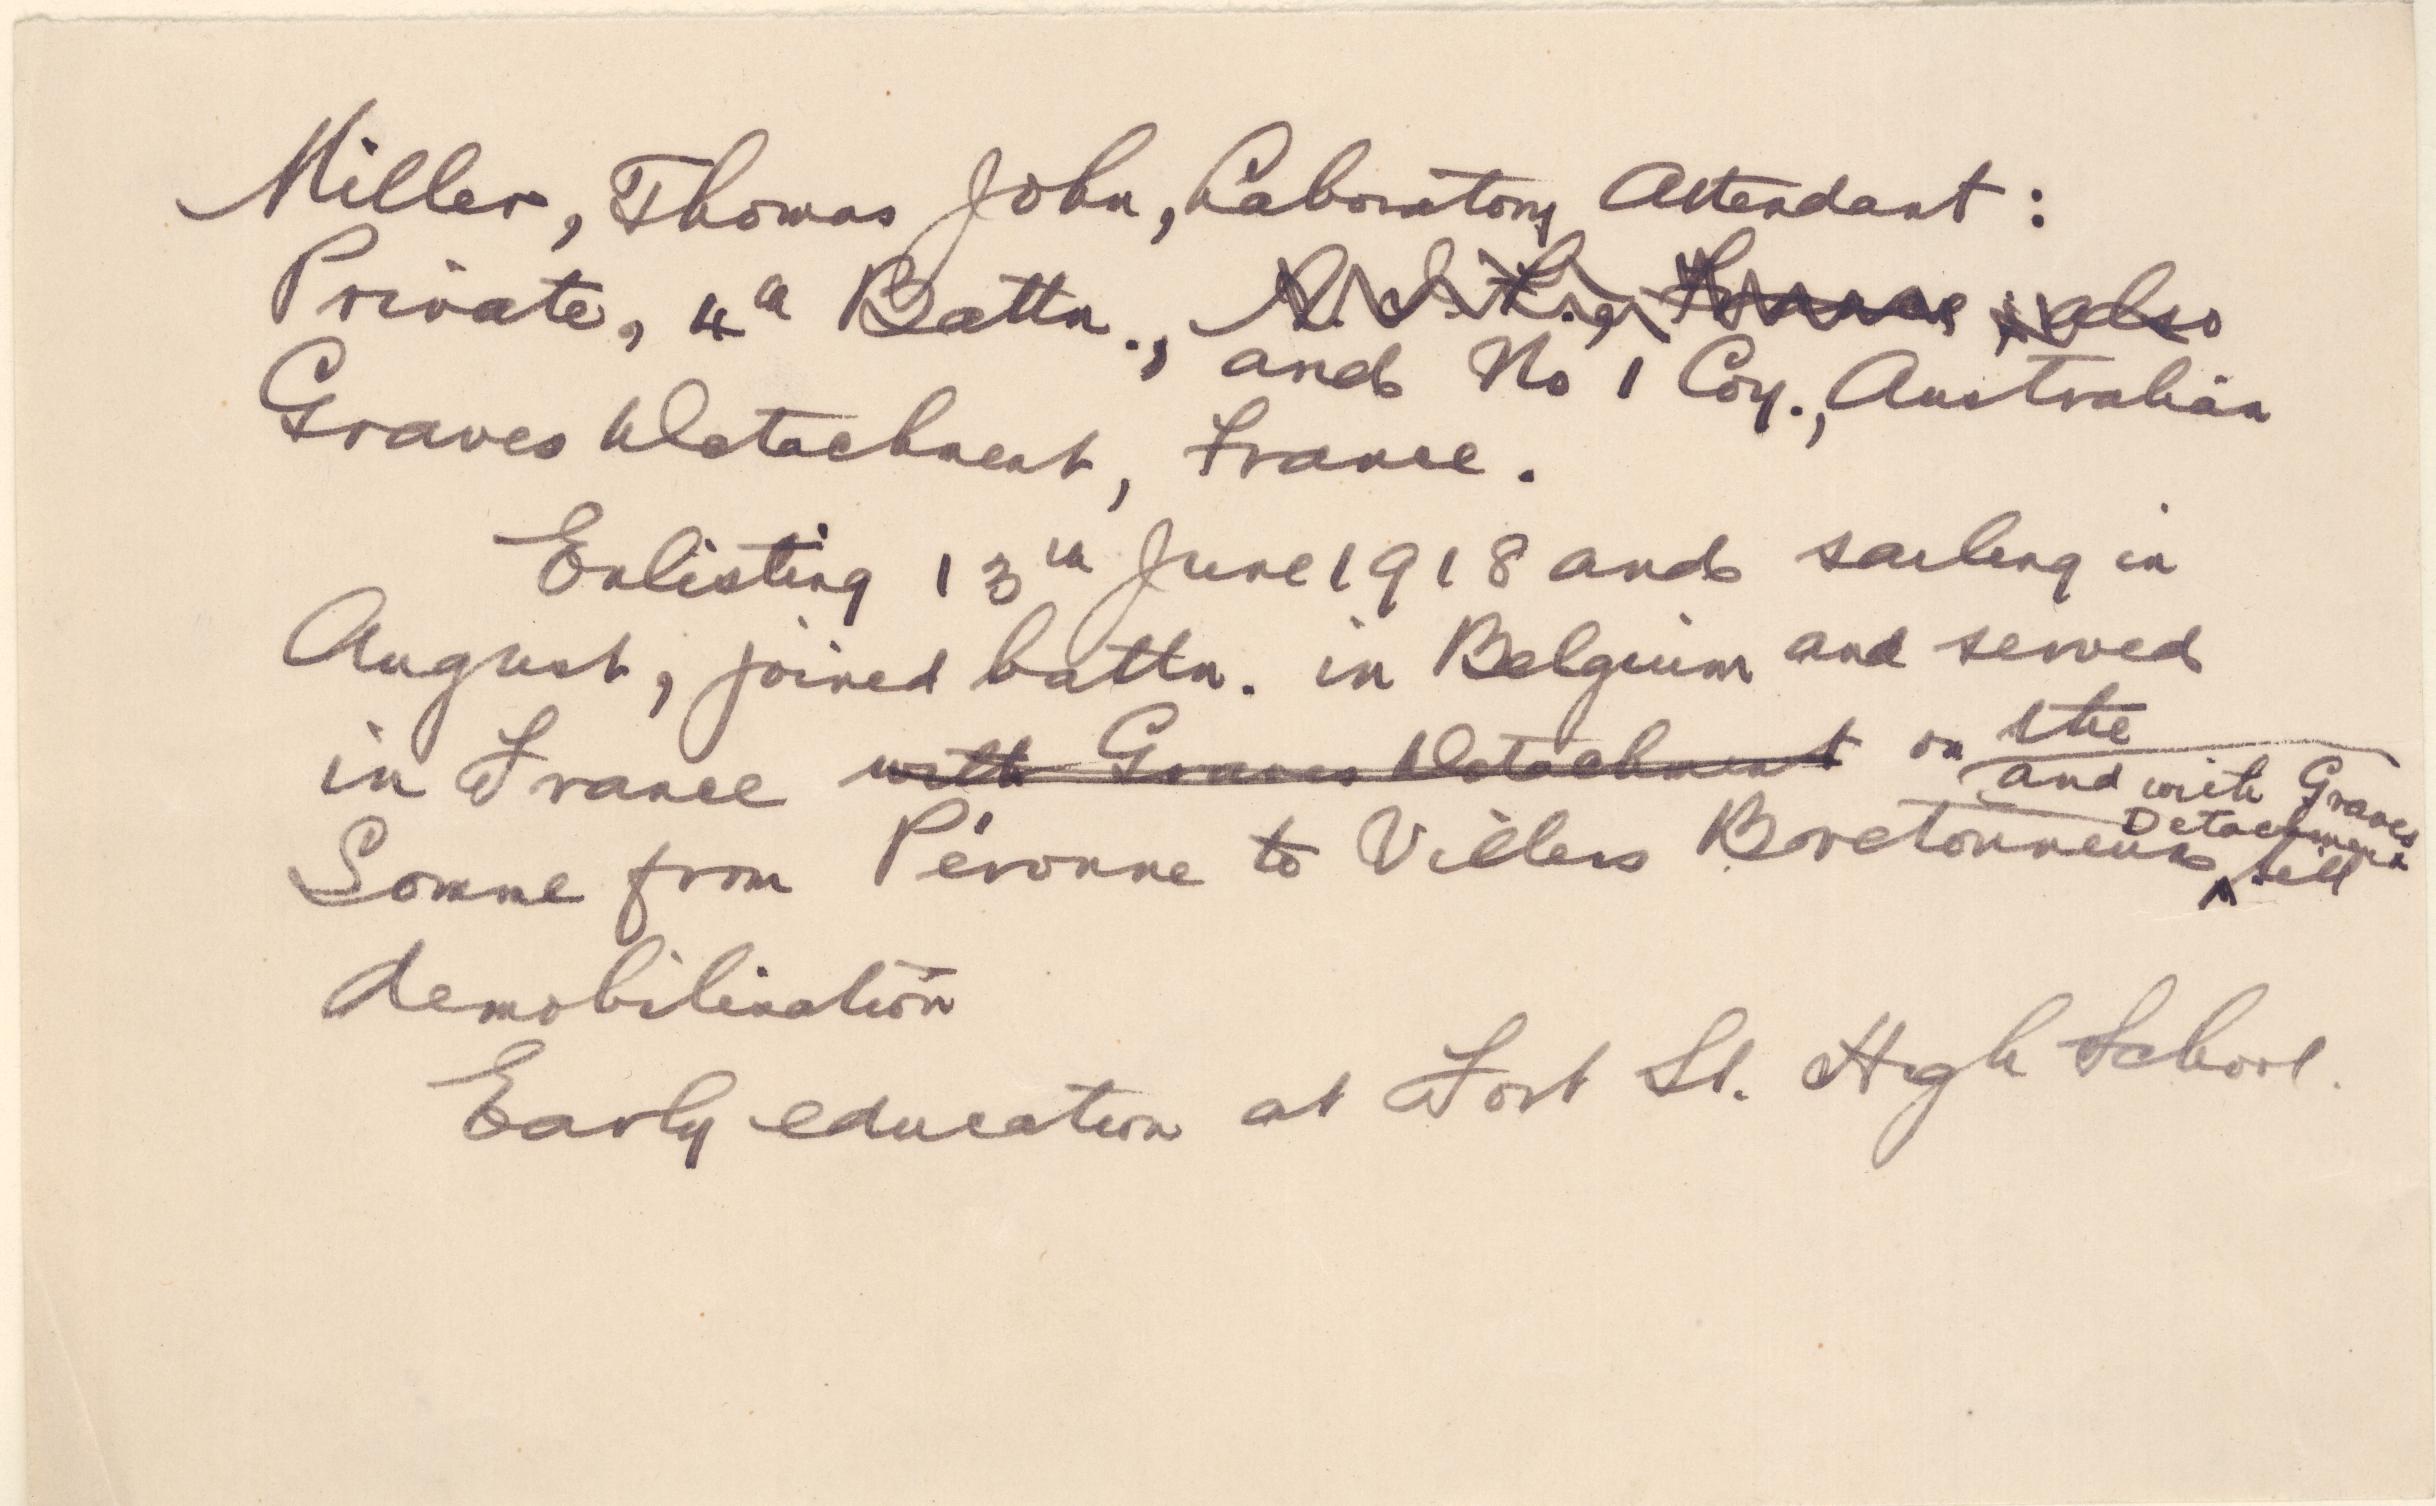 Miller, Thomas John, Laboratory Attendant :
Private, 4th Battn., A.I.F., France ; also
and No 1 Coy., Australian
Graves Detachment, France.
Enlisting 13th June 1918 and sailing in
August, joined battn. in Belgium and served
in France with Graves Detachment on the
and with Graves
Detachment
Somme from Péronne to Villers Bretonneux till
demobilisation
Early education at Fort St. High School.